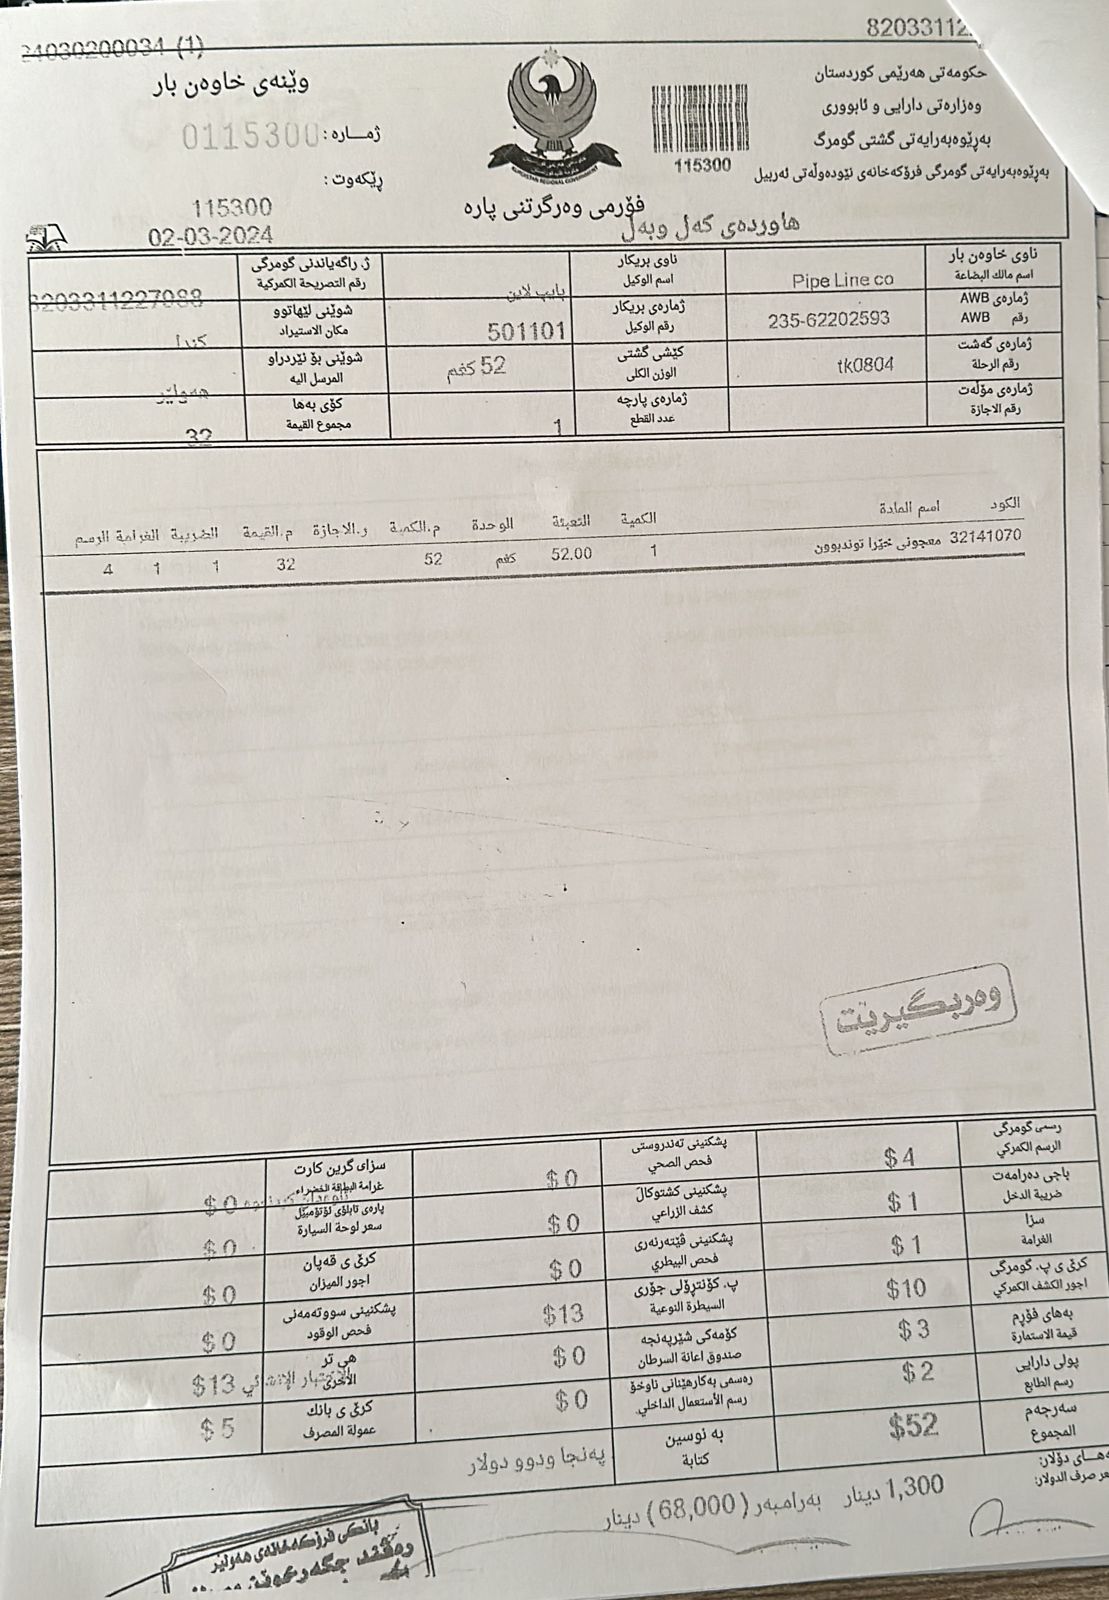 24030200034 (1)
82033112
وێنەی خاوەن بار
ژمـــارە: 0115300
ڕێکەوت:
115300
02-03-2024
KURDISTAN REGIONAL GOVERNMENT
115300
حکومەتی هەرێمی کوردستان
وەزارەتی دارایی و ئابووری
بەڕێوەبەرایەتی گشتی گومرگ
بەڕێوەبەرایەتی گومرگی فڕۆکەخانەی نێودەوڵەتی ئەربیل
فۆرمی وەرگرتنی پارە
هاوردەی کەل وپەل
ناوی خاوەن بار
اسم مالك البضاعة
Pipe Line co
ناوی بریکار
اسم الوكيل
پایپ لاین
ژ. راگەیاندنی گومرگی
رقم التصريحة الكمركية
8203311227088
ژمارەی AWB
رقم AWB
235-62202593
ژمارەی بریکار
رقم الوكيل
501101
شوێنی لێهاتوو
مكان الاستيراد
کندا
ژمارەی گەشت
رقم الرحلة
tk0804
کێشی گشتی
الوزن الكلی
52 كغم
شوێنی بۆ نێردراو
المرسل اليه
هەولێر
ژمارەی مۆڵەت
رقم الاجازة
ژمارەی پارچە
عدد القطع
1
کۆی بەها
مجموع القيمة
32
الكود اسم المادة الكمية التعبئة الوحدة م.الكمية ر.الاجازة م.القيمة الضريبة الغرامة الرسم
32141070 معجونی خێرا توندبوون 1 52.00 كغم 52 32 1 1 4
وەربگیرێت
رسمی گومرگی
الرسم الكمركي
$ 4
پشکنینی تەندروستی
فحص الصحي
$ 0
سزای گرین کارت
غرامة البطاقة الخضراء
$ 0
باجی دەرامەت
ضريبة الدخل
$ 1
پشکنینی کشتوکاڵ
كشف الزراعي
$ 0
پارەی تابلۆی ئۆتۆمبێل
سعر لوحة السيارة
$ 0
سزا
الغرامة
$ 1
پشکنینی ڤێتەرنەری
فحص البيطري
$ 0
کرێ ی قەپان
اجور الميزان
$ 0
کرێ ی پ. گومرگی
اجور الكشف الكمركي
$10
پ. کۆنترۆڵی جۆری
السيطرة النوعية
$13
پشکنینی سووتەمەنی
فحص الوقود
$ 0
بەهای فۆڕم
قيمة الاستمارة
$ 3
کۆمەکی شێرپەنجە
صندوق اعانة السرطان
$ 0
هی تر
الأخرى
الاختبار الإنشائي $13
پولی دارایی
رسم الطابع
$ 2
رەسمی بەکارهێنانی ناوخۆ
رسم الأستعمال الداخلي
$ 0
کرێ ی بانك
عمولة المصرف
$ 5
سەرجەم
المجموع
$52
بە نوسین
كتابة
پەنجا ودوو دولار
ەهـای دۆلار:
عر صرف الدولار:
1,300 دینار بەرامبەر ( 68,000) دینار
بانکی فڕۆکەخانەی هەولێر